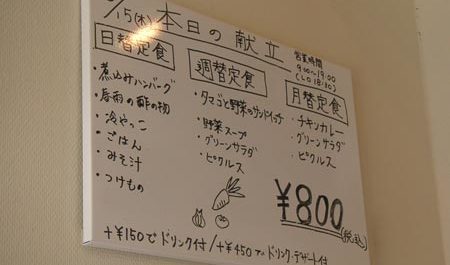 /15(木) 本日の献立
営業時間
9:00~19:00
(LO 18:30)
日替定食
・煮込みハンバーグ
・春雨の酢の物
・冷やっこ
・ごはん
・みそ汁
・つけもの
週替定食
・タマゴと野菜のサンドイッチ
・野菜スープ
・グリーンサラダ
・ピクルス
月替定食
・チキンカレー
・グリーンサラダ
・ピクルス
¥800(税込)
+¥150でドリンク付/+¥450でドリンク・デザート付